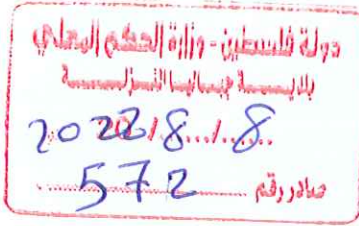 دولة فلسطين - وزارة الحكم المحلي
بلديـــة جبـاليـا النـزلـــة
2022/8/8
صادر رقم 572